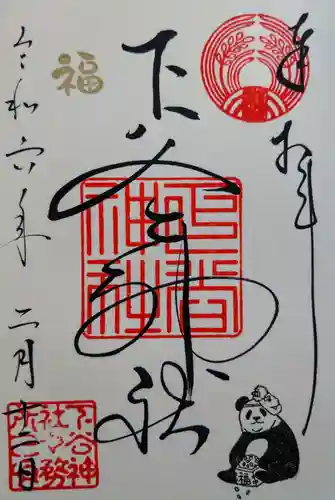 奉拝
下谷神社
下谷神社
福
令和六年二月十二日
下谷神
社社務
所之印